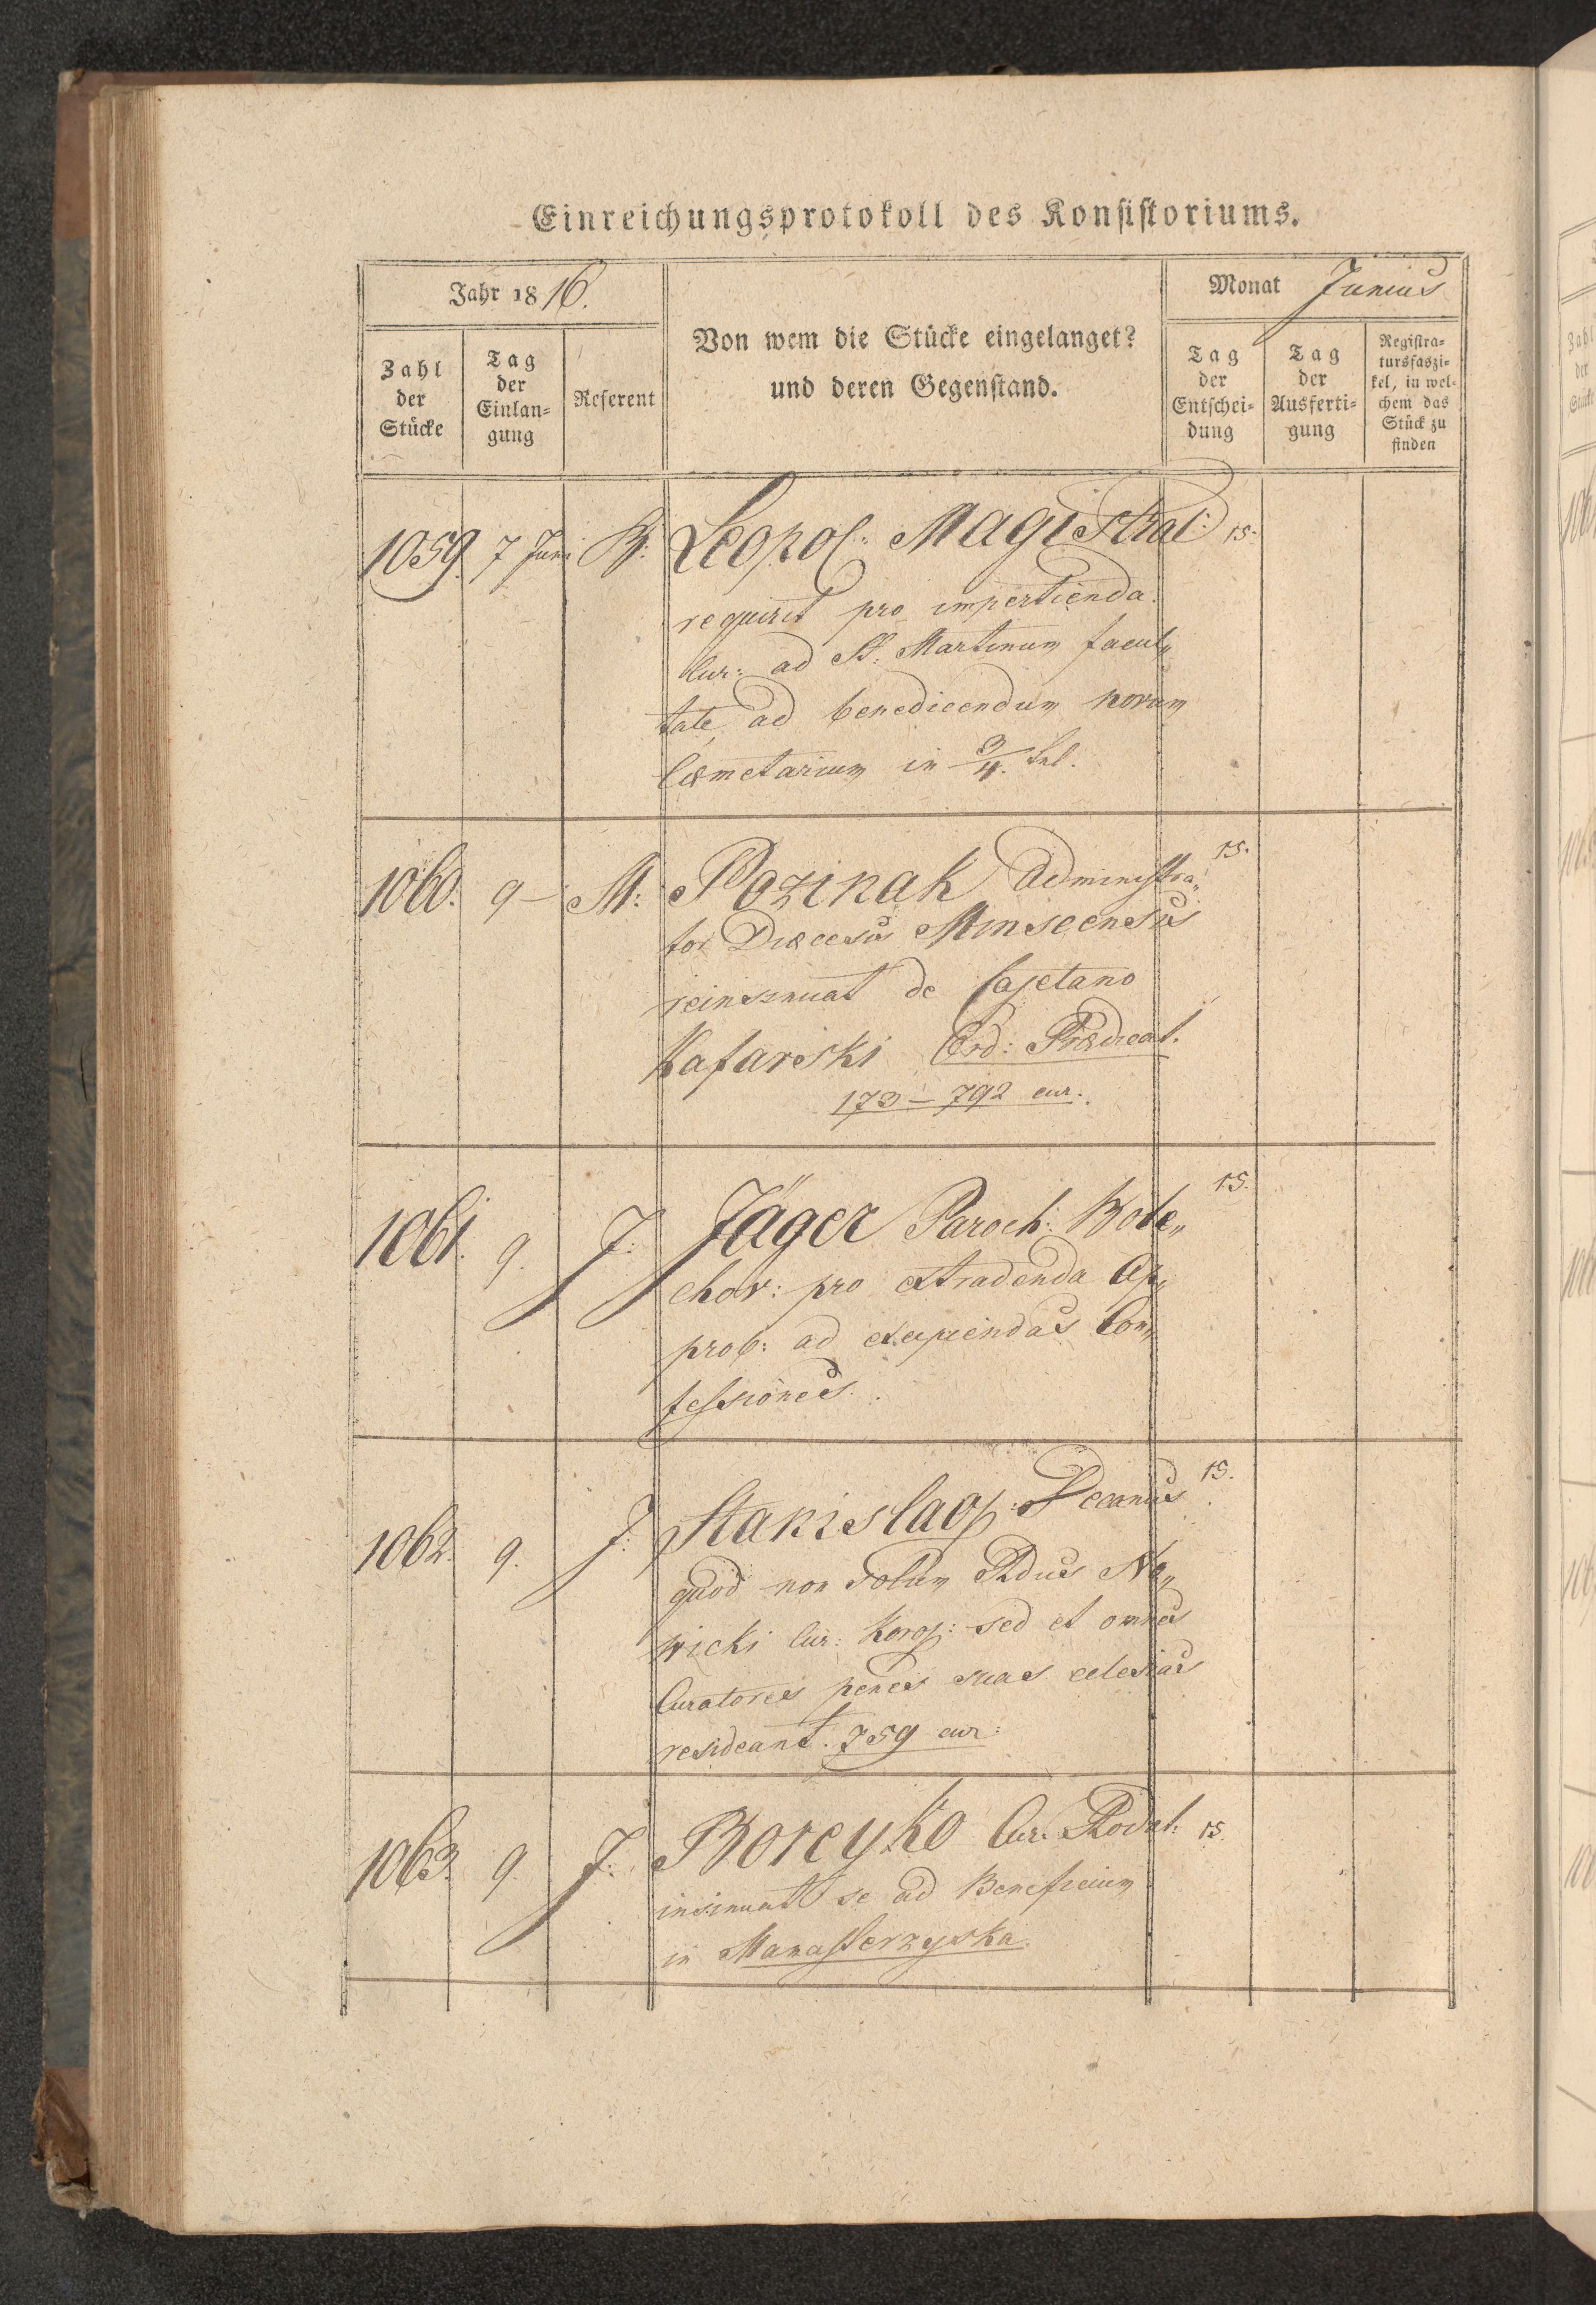 Einreichungsprotokoll des Konsistoriums.
Jahr 1816.
Monat Junius
Zahl der Stücke
Tag der Einlan-gung
Referent
Von wem die Stücke eingelanget?
und deren Gegenstand.
Tag der Entschei-dung
Tag der Ausferti-gung
Registra-tursfaszi-kel, in wel-chem das Stück zu finden
1059. 7 Juni B: Leopol: Magistrat: 15.
requirit pro impertienda
Cur: ad St: Martinum facul„
tate ad benedicendum novum
Cœmetarium in 3/4. Lal.
1060. 9 – M: Pozinak Administra„ 15.
tor Diœcesis Minscensis
reinsinuat de Cajetano
Kafarski Ord: Prædicat.
173 – 792 cur.
1061. 9. J: Jäger Paroch: Bole„ 15.
chov: pro extradenda Ap„
prob: ad excipiendas Con„
fessiones.
1062. 9. J: Stanislaop: Decanus 15.
quod non solum Rdus No„
wicki Cur: Korop: sed et omnes
Curatores penes suas eclesias
resideant. 759 cur:
1063. 9. J: Boreyko Cur: Rodat: 15.
insinuat se ad Beneficium
in Manasterzyska